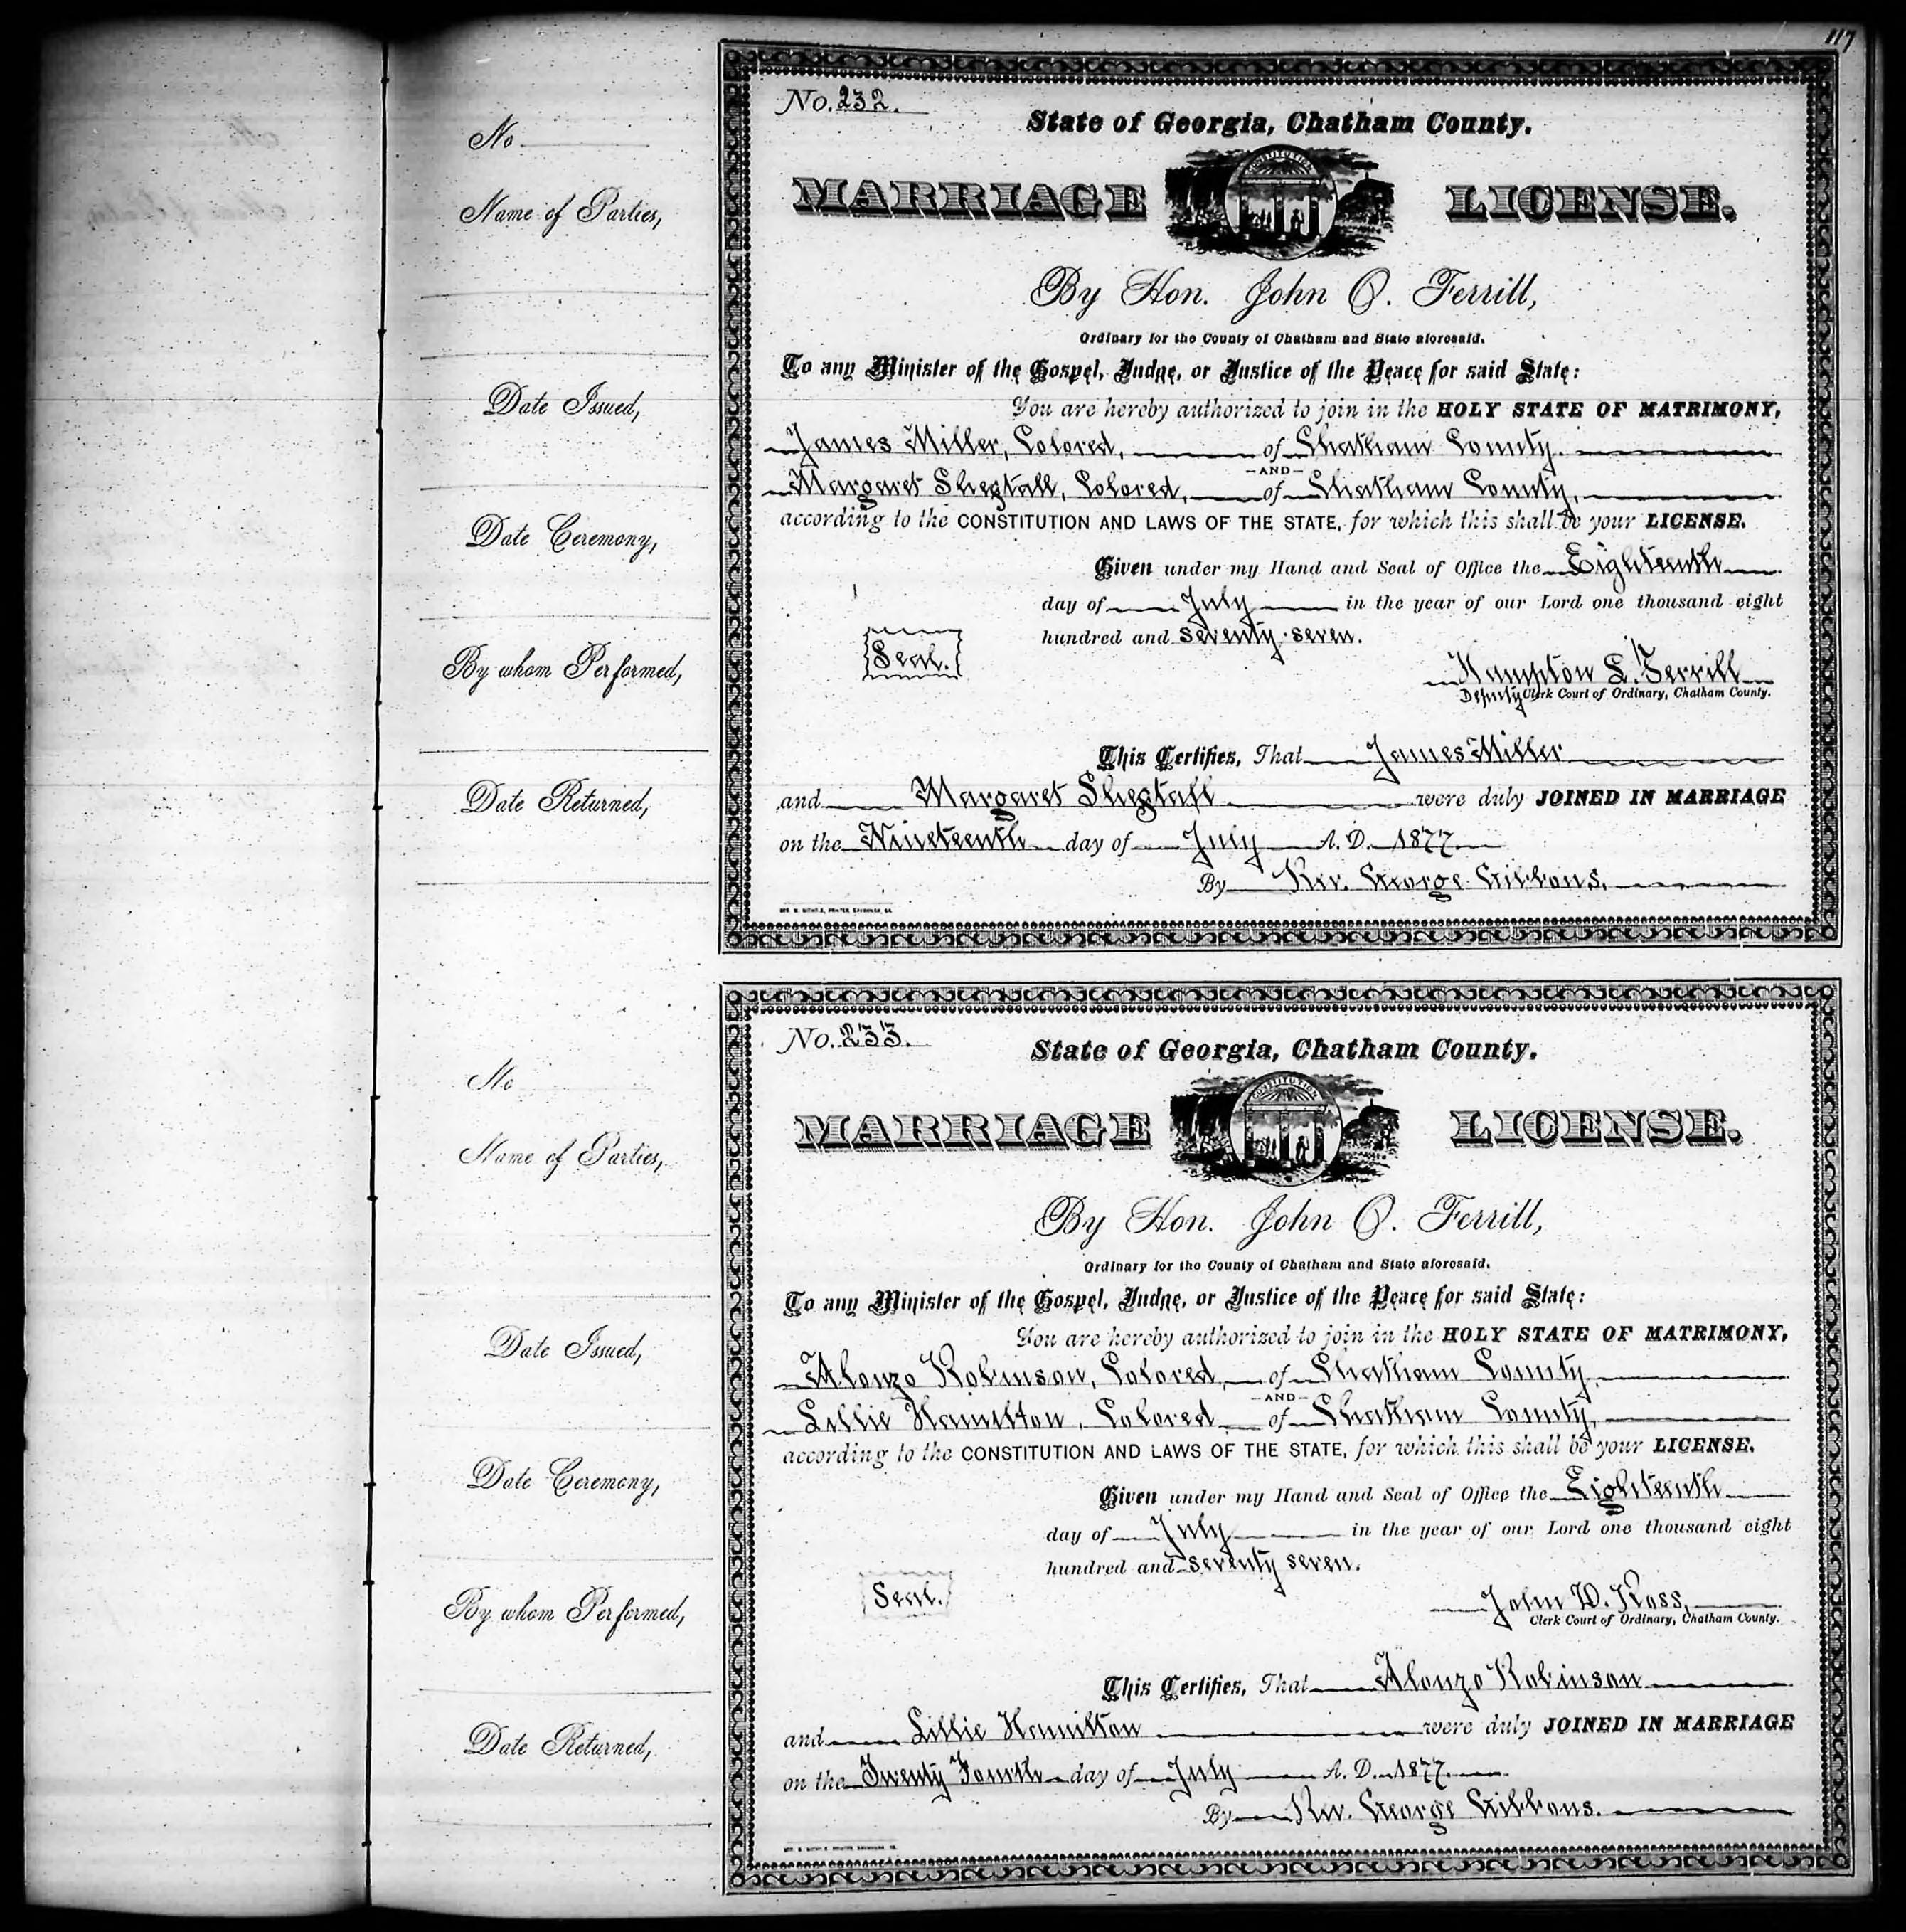 117
No.
Name of Parties,
Date Issued,
Date Ceremony,
By whom Performed,
Date Returned,
No. 232.
State of Georgia, Chatham County.
MARRIAGE LICENSE.
CONSTITUTION
By Hon. John O. Ferrill,
Ordinary for the County of Chatham and State aforesaid.
To any Minister of the Gospel, Judge, or Justice of the Peace for said State:
You are hereby authorized to join in the HOLY STATE OF MATRIMONY,
James Miller, Colored, of Chatham County.
-AND-
Margaret Sheftall, Colored, of Chatham County,
according to the CONSTITUTION AND LAWS OF THE STATE, for which this shall be your LICENSE.
Given under my Hand and Seal of Office the Eighteenth
day of July in the year of our Lord one thousand eight
hundred and seventy-seven.
Seal.
Hampton L. Ferrill
Deputy Clerk Court of Ordinary, Chatham County.
This Certifies, That James Miller
and Margaret Sheftall were duly JOINED IN MARRIAGE
on the Nineteenth day of July A. D. 1877.
By Rev. George Gibbons.
No.
Name of Parties,
Date Issued,
Date Ceremony,
By whom Performed,
Date Returned,
No. 233.
State of Georgia, Chatham County.
MARRIAGE LICENSE.
CONSTITUTION
By Hon. John O. Ferrill,
Ordinary for the County of Chatham and State aforesaid.
To any Minister of the Gospel, Judge, or Justice of the Peace for said State:
You are hereby authorized to join in the HOLY STATE OF MATRIMONY,
Alonzo Robinson, Colored, of Chatham County,
-AND-
Lillie Hamilton, Colored of Chatham County,
according to the CONSTITUTION AND LAWS OF THE STATE, for which this shall be your LICENSE.
Given under my Hand and Seal of Office the Eighteenth
day of July in the year of our Lord one thousand eight
hundred and seventy seven.
Seal.
John D. Ross,
Clerk Court of Ordinary, Chatham County.
This Certifies, That Alonzo Robinson
and Lillie Hamilton were duly JOINED IN MARRIAGE
on the Twenty Fourth day of July A. D. 1877.
By Rev. George Gibbons.